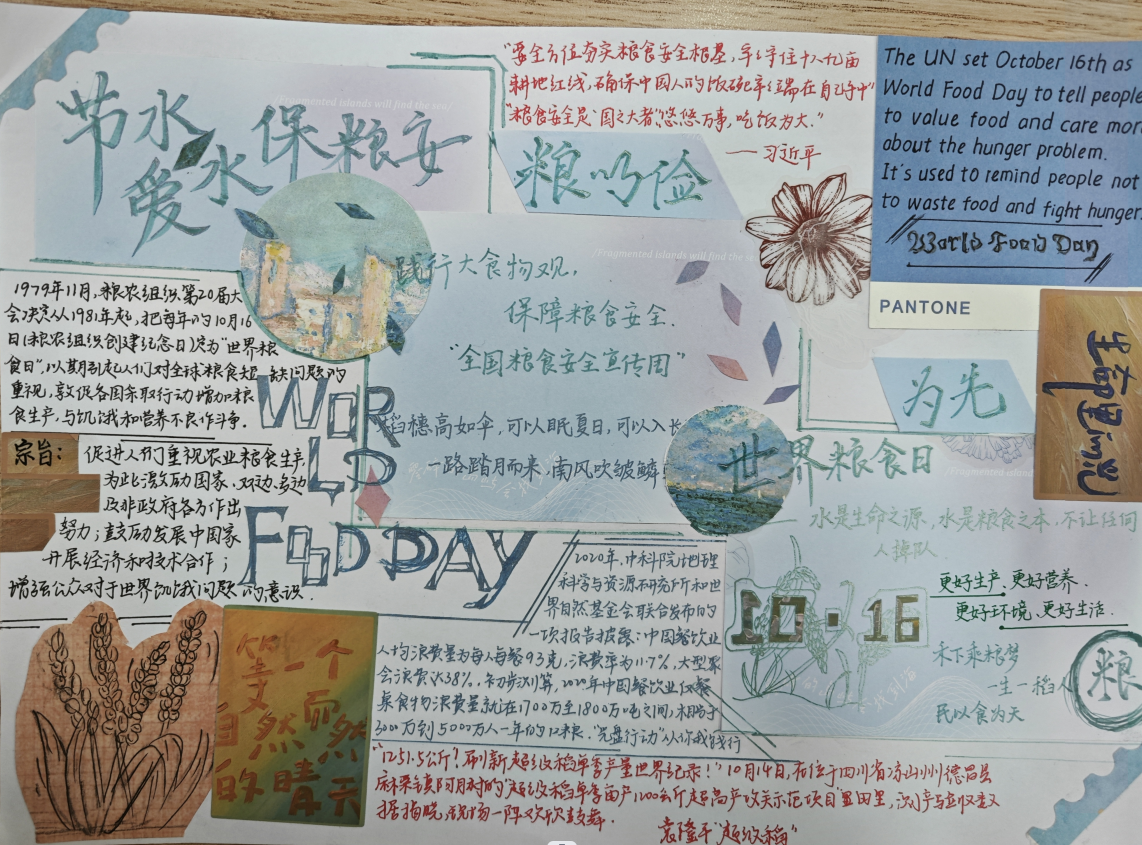 节水
爱水
保粮安
/Fragmented islands will find the sea/
"要全方位夯实粮食安全根基，牢牢守住十八亿亩
耕地红线，确保中国人的饭碗牢牢端在自己手中"
"粮食安全是"国之大者"悠悠万事，吃饭为大."
——习近平
The UN set October 16th as
World Food Day to tell people
to value food and care mor
about the hunger problem.
It's used to remind people not
to waste food and fight hunger.
World Food Day
PANTONE
践行大食物观，
保障粮食安全.
"全国粮食安全宣传周"
稻穗高如伞，可以眠夏日，可以入长
一路踏月而来，南风吹皱鳞
为先
1979年11月，粮农组织第20届大
会决定从1981年起，把每年的10月16
日(粮农组织创建纪念日)定为"世界粮
食日"，以期引起人们对全球粮食短缺问题的
重视，敦促各国采取行动增加粮
食生产，与饥饿和营养不良作斗争.
宗旨:
促进人们重视农业粮食生产
为此激励国家、双边、多边
及非政府各方作出
努力；鼓励发展中国家
开展经济和技术合作；
增强公众对于世界饥饿问题的意识.
WORLD
FOOD DAY
世界粮食日
水是生命之源，水是粮食之本，不让任何
人掉队.
10·16
更好生产、更好营养.
更好环境、更好生活.
禾下乘粮梦
一生一稻人
民以食为天
粮
2020年，中科院地理
科学与资源研究所和世
界自然基金会联合发布的
一项报告披露：中国餐饮业
人均浪费量为每人每餐93克，浪费率为11.7%，大型聚
会浪费达38%.
2020年中国餐饮业仅餐
桌食物浪费量就在1700万至1800万吨之间，相当于
3000万到5000万人一年的口粮."光盘行动"从你我践行
等一个
自然而然
的晴天
"1251.5公斤！刷新超级稻单季产量世界纪录！"10月14日，在位于四川省凉山州德昌县
麻栗镇阿月村的"超级稻单季亩产1200公斤超高产攻关示范项目"田里，测产与验收数
据揭晓，现场一阵欢欣鼓舞.
袁隆平"超级稻"